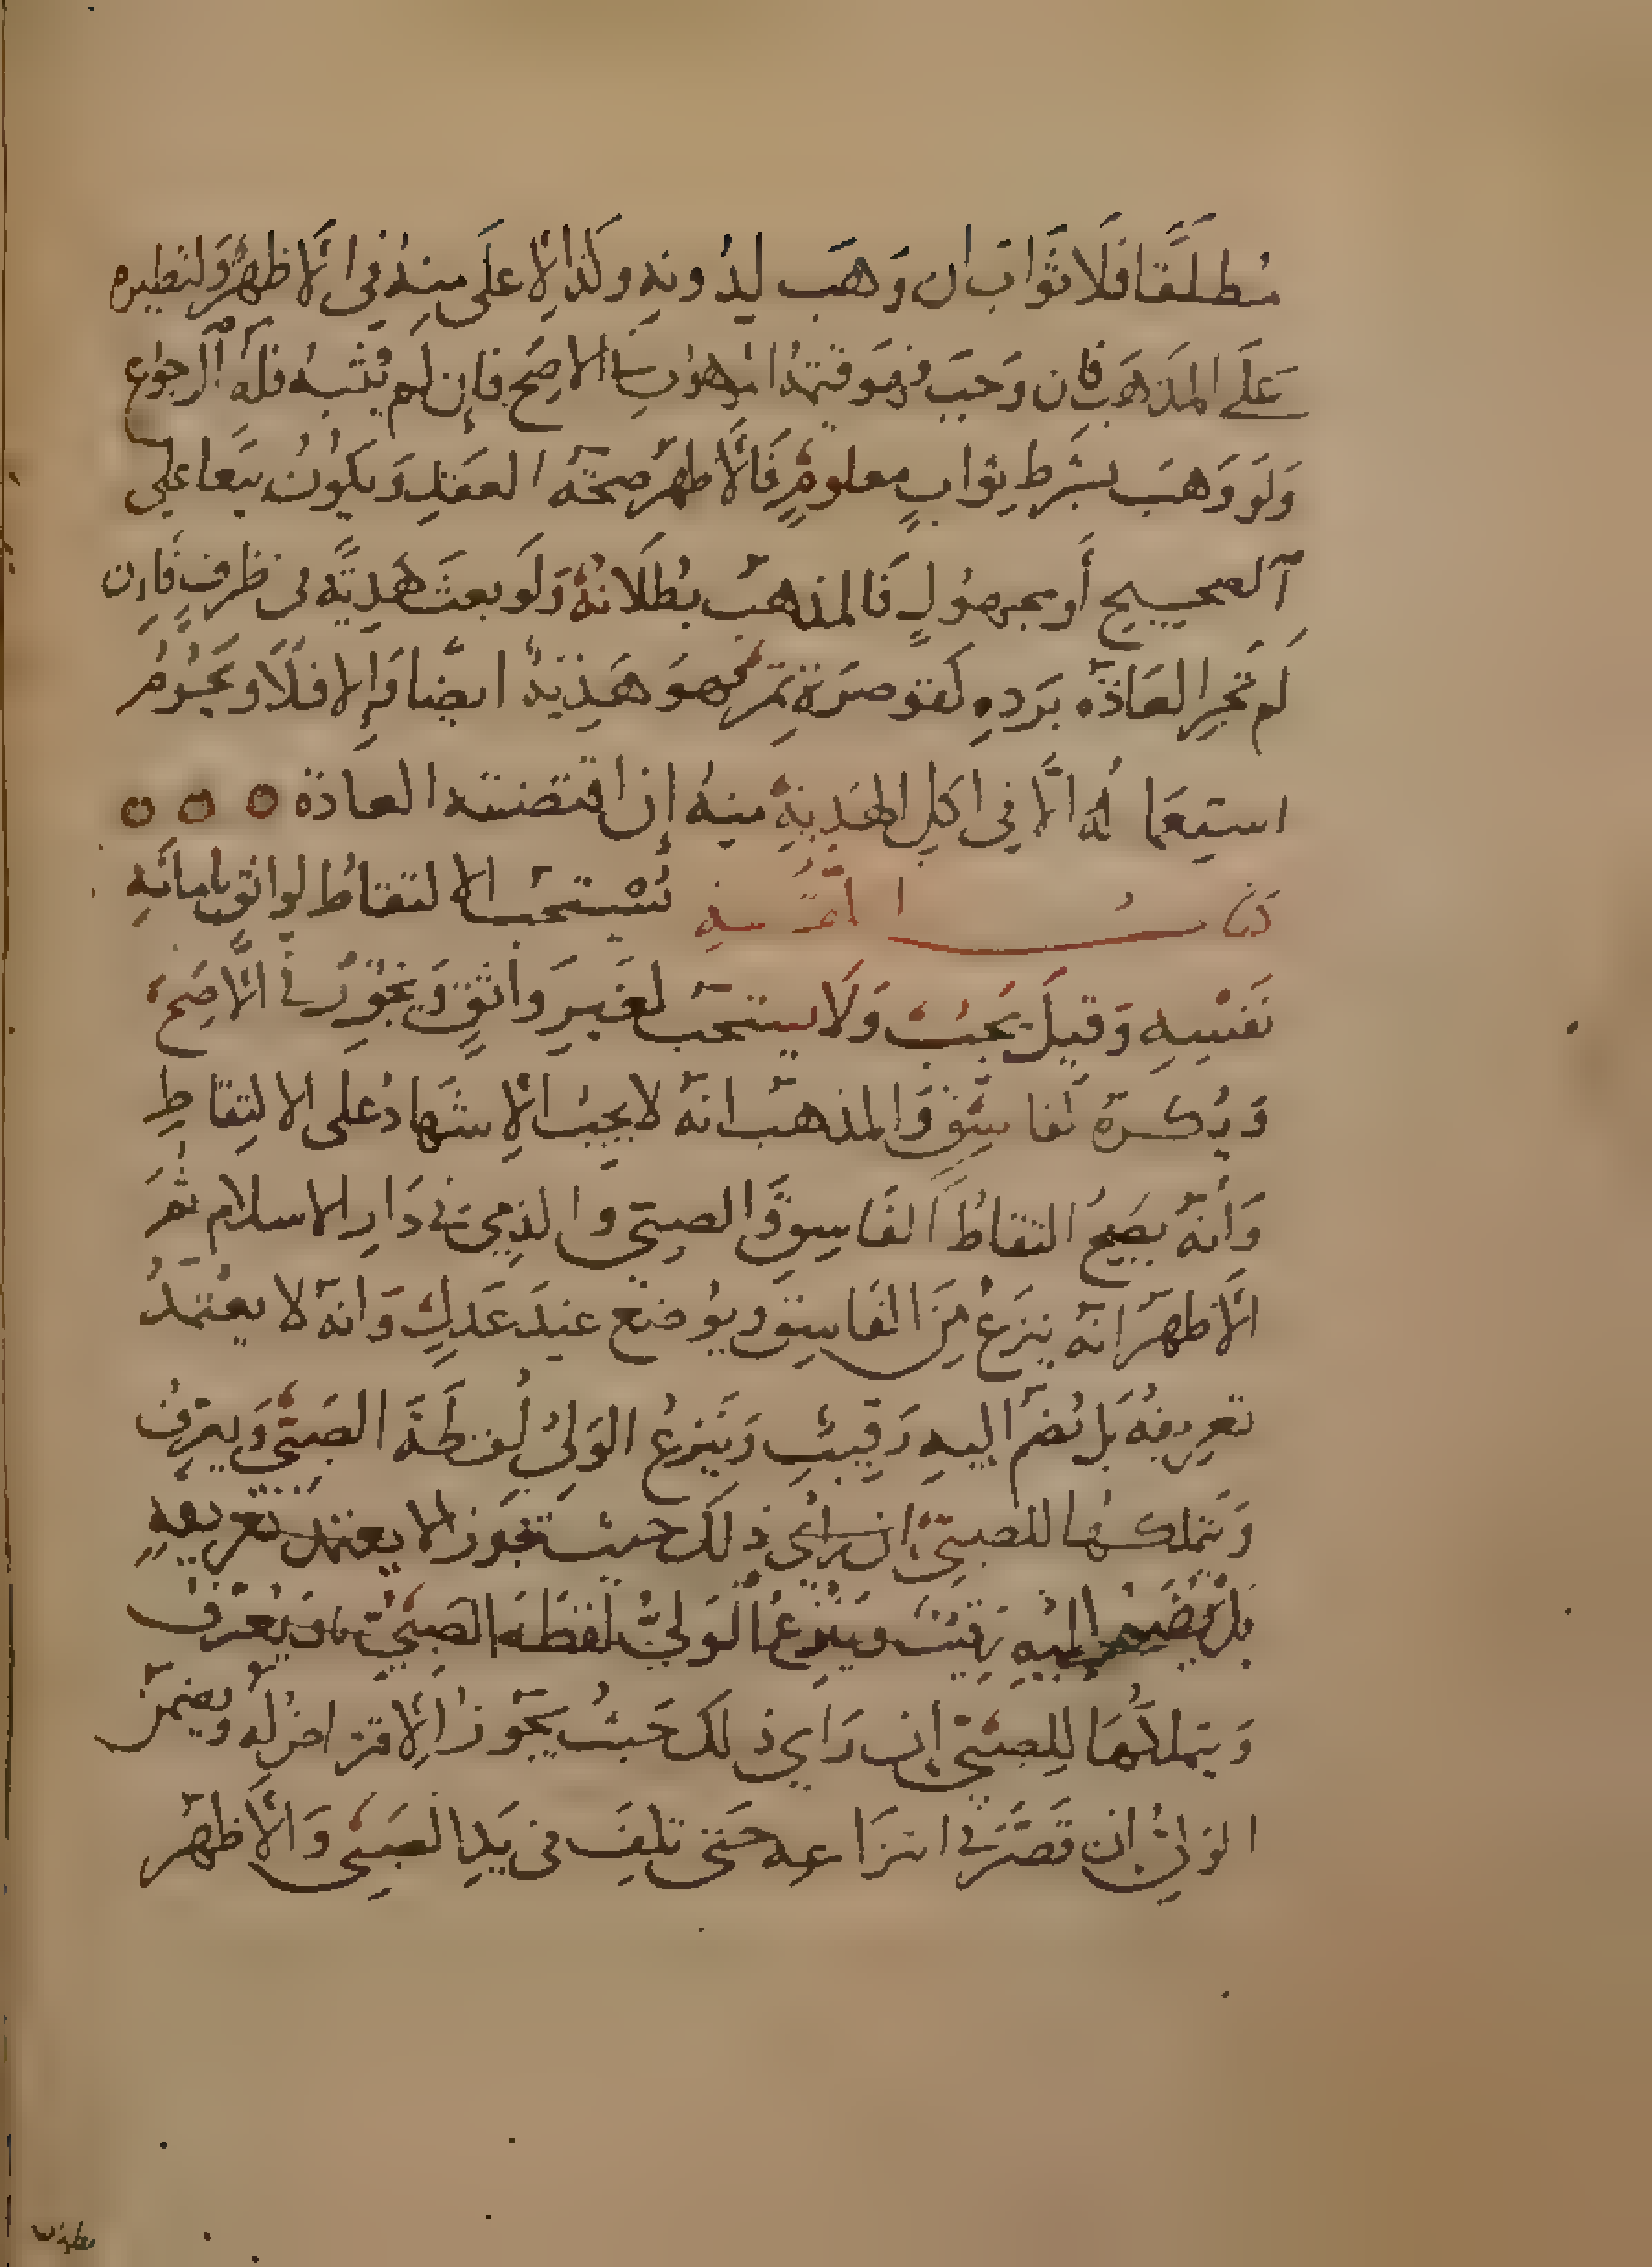 مُطلَقًا فَلَا ثَوَابَ ان وَهَب لِدُونِهِ وكذا لِاعلَى مِنهُ في الَاظهَرِ وَلنَظِيرِهِ
عَلَى المَذهَبِ فان وَجَبَ فهوَ قيمَةُ الموهُوبِ في الاصَحِ فإن لَم يُثِبهُ فَلَهُ الرجوع
وَلَو وَهَبَ بشَرطِ ثوابٍ معلومٍ فَالَاظهر صحّة العَقدِ وَيكونُ بيعًا على
الصحيح أو مجهُولٍ فَالمذهبُ بُطلَانُهُ وَلَو بعثَ هَديَّة في ظرفٍ فَان
لَم تجر العَادَة بَردهِ كقَوصرَة تمرٍ فهوَ هَديَّة ايضًا وَإلا فلَا وَيحرُمُ
استِعمَاله الَّا في اكلِ الهَديةِ مِنهُ إن اقتضته العادة
كتاب اللقطة يُسْتحَبُ الالتقاطُ لواثق بامانَةِ
نَفسِهِ وَقيلَ يَجبُ وَلَا يستحبّ لغَيرِ وَاثقٍ وَيجُوزُ في الَاصَحِ
وَيُكرَهُ لفاسقٍ وَالمذهب انهّ لا يجبُ الإشهادُ على الالتِقاطِ
وَأنهّ يصِحُ التقاطُ الفَاسِقِ وَالصبيّ والذِمي في دَارِ الاسلام ثمَ
الَاظهر انهّ ينزَعُ مِنَ الفَاسِق ويوُضعُ عندَ عَدلٍ وَانهّ لا يعتمدُ
تعرِيفهُ بَل يُضمّ اليهِ رَقيبٌ وَيَنزعُ الوَليُ لُقطَةَ الصَبيّ وَيعرّفُ
وَيَتملكها للصبيّ ان راي ذلك حيث تجوز لا يعتمد تعريفهِ
بلْ يُضَمُ إليْهِ رَقيبٌ وَيَنْزِعُ الوَليُّ لُقطَةَ الصَبيِّ وَيُعَرِّفُ
وَيتملكُهَا لِلصبيّ إن رَاي ذلك حَيثُ يجَوزُ الِاقتراضُ لَهُ وَيضمَن
الوَليُ ان قَصَّرَ في انتزَاعِه حَتّى تلِفَ في يَدِ الصَبي وَالَاظهر